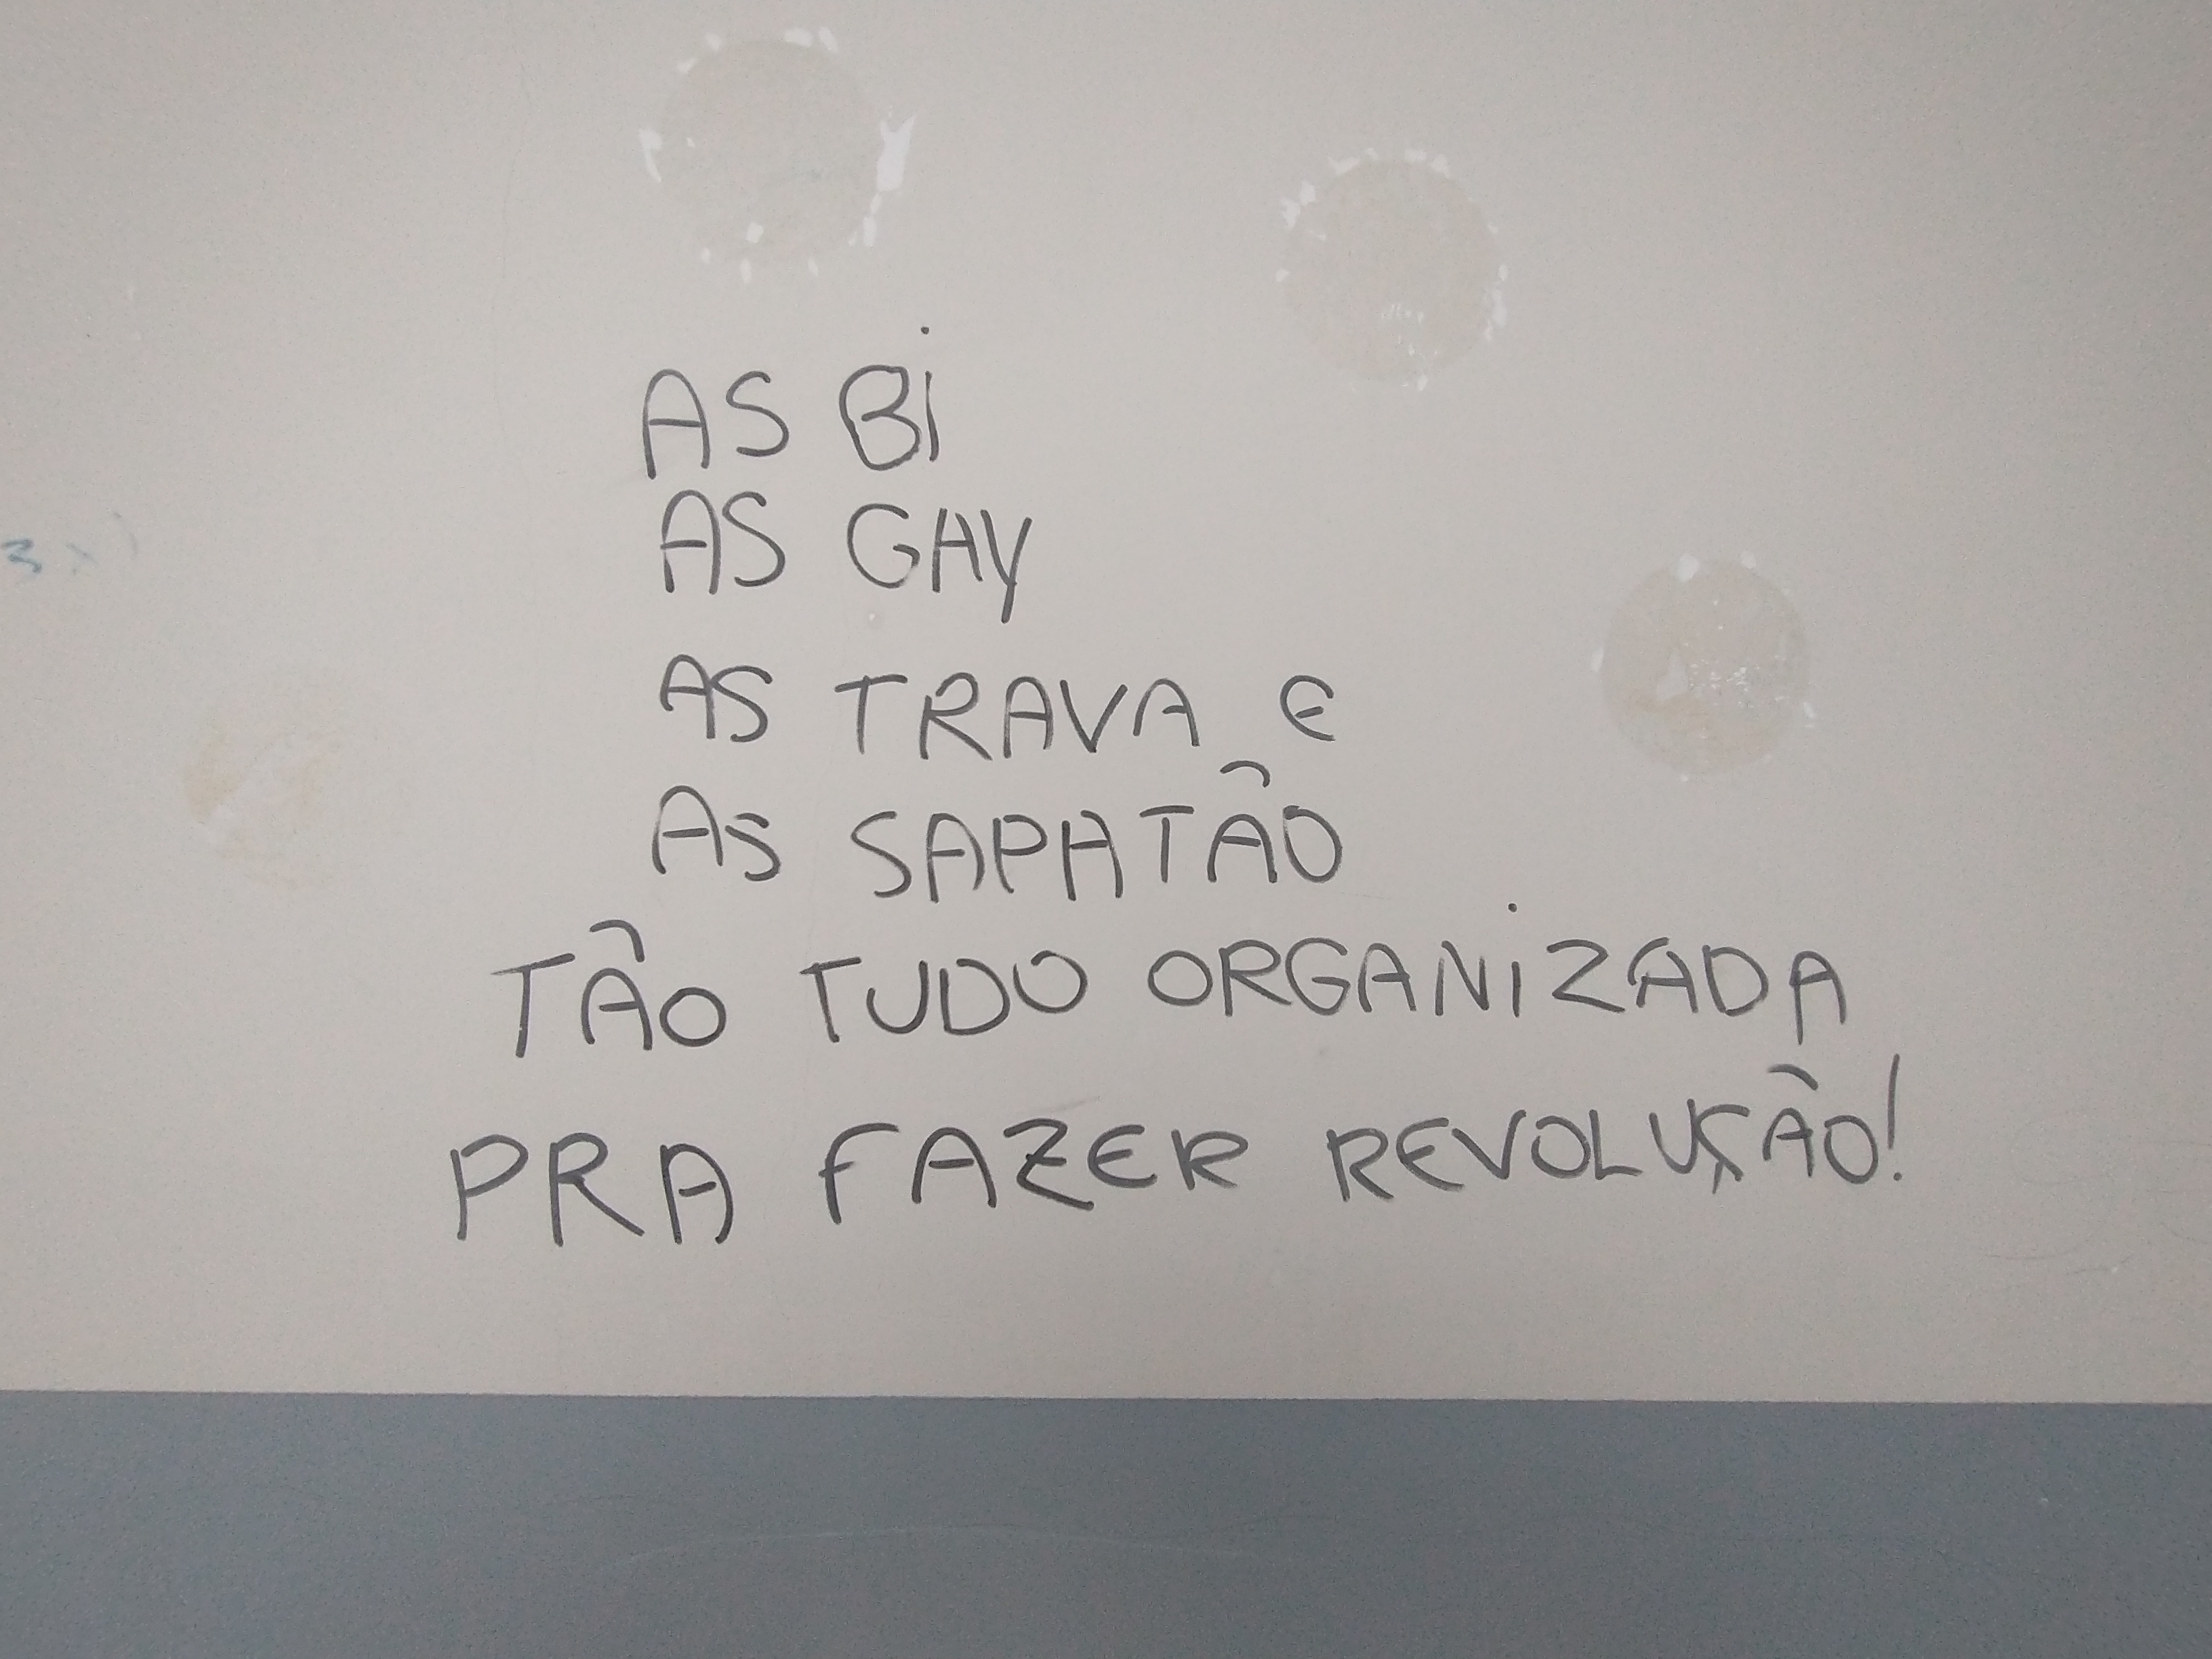 AS Bi
AS GAY
AS TRAVA E
AS SAPATÃO
TÃO TUDO ORGANiZADA
PRA FAZER REVOLUÇÃO!